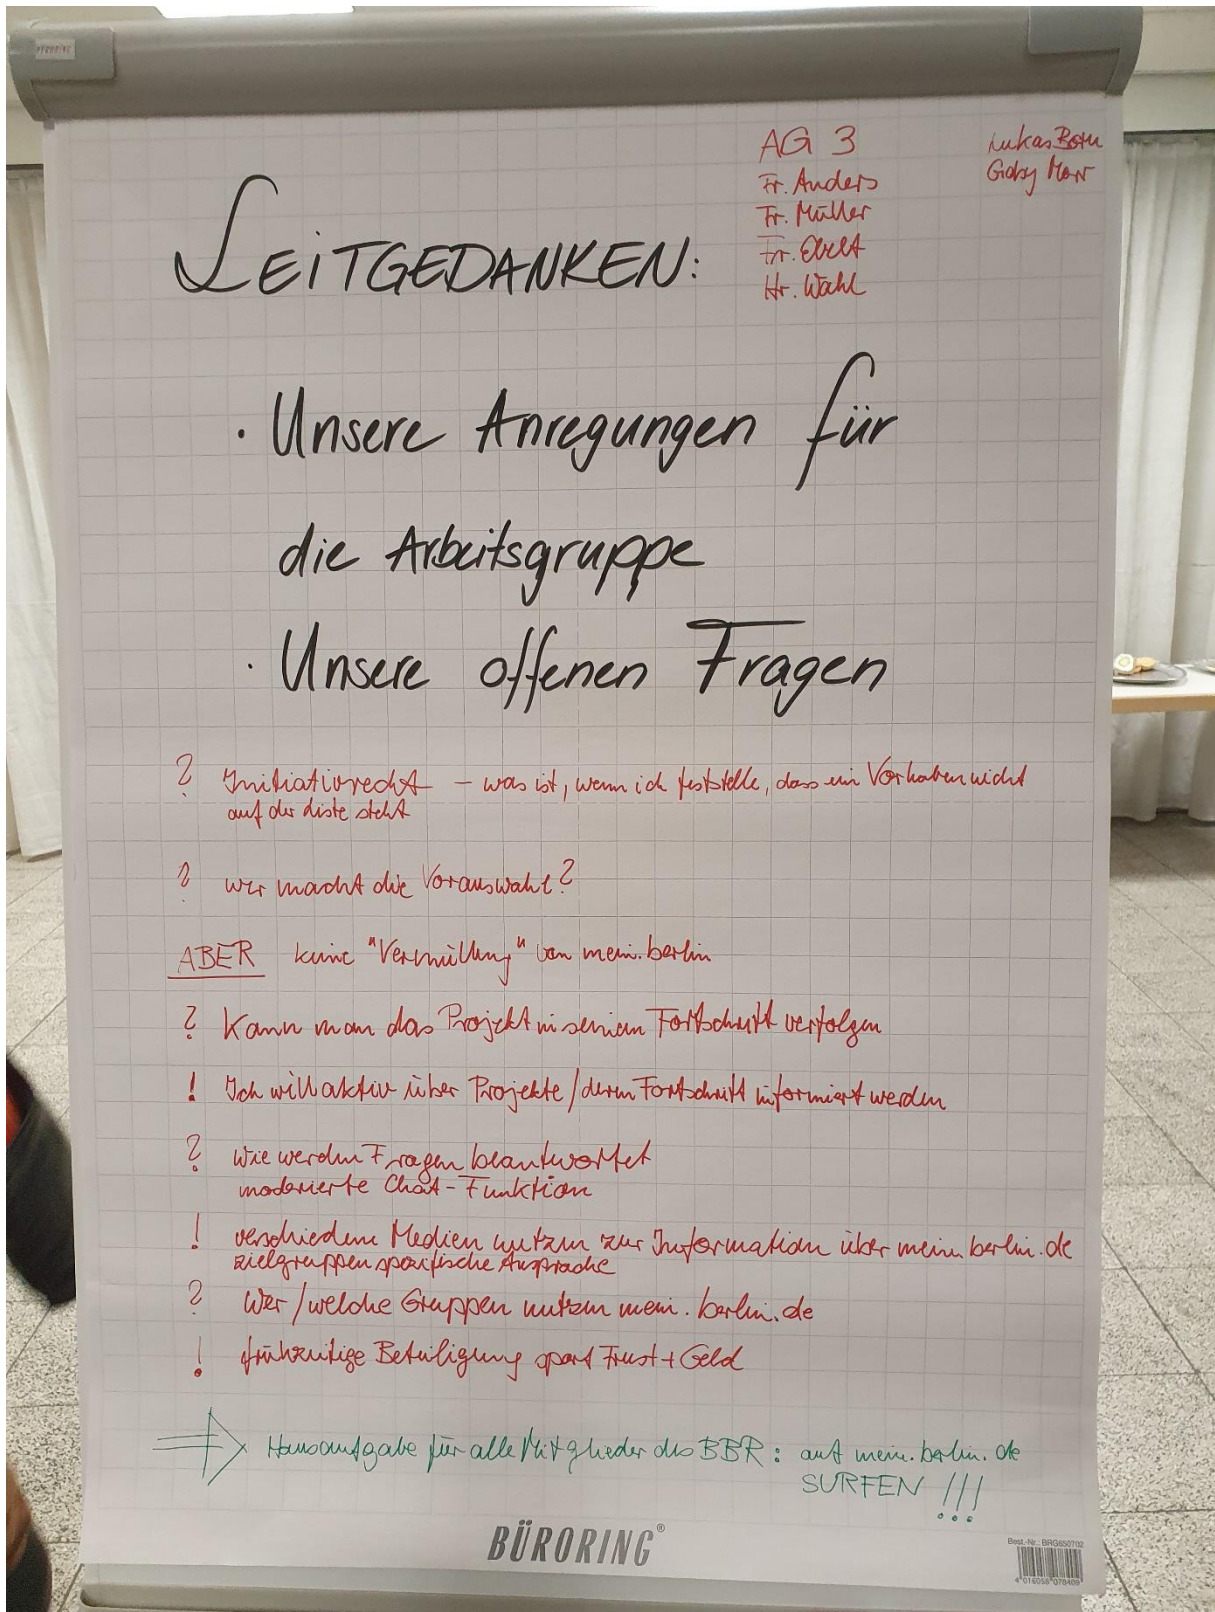 BÜRORING
AG 3
Fr. Anders
Fr. Müller
Fr. Ebelt
Hr. Wahl
Lukas Born
Gaby Morr
LEITGEDANKEN:
· Unsere Anregungen für
die Arbeitsgruppe
· Unsere offenen Fragen
? Initiativrecht – was ist, wenn ich feststelle, dass ein Vorhaben nicht
auf der Liste steht
? wer macht die Vorauswahl?
ABER keine "Vermüllung" von mein.berlin
? Kann man das Projekt in seinem Fortschritt verfolgen
! Ich will aktiv über Projekte/deren Fortschritt informiert werden
? Wie werden Fragen beantwortet
moderierte Chat-Funktion
! verschiedene Medien nutzen zur Information über mein.berlin.de
zielgruppenspezifische Ansprache
? Wer/welche Gruppen nutzen mein.berlin.de
! frühzeitige Beteiligung spart Frust + Geld
⇒ Hausaufgabe für alle Mitglieder des BBR: auf mein.berlin.de
SURFEN !!!
BÜRORING®
Best.-Nr.: BRG650702
4 016058 078409